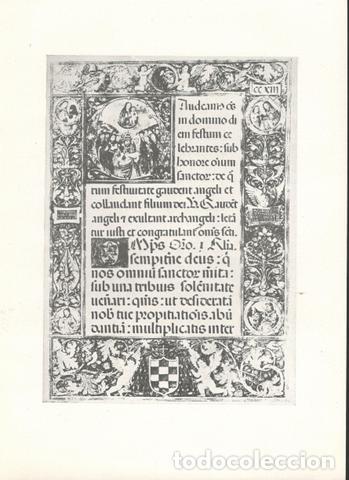 CCXIII
audeam⁹ oēs
in domino di
em festum ce
lebrantes: sub
honore oīum
sanctor: de q̄
rum festiuitate gaudent angeli et
collaudant filium dei. V. Gaudēt
angeli ⁊ exultant archangeli: letā
tur iusti et congratulant oīnes
Oīnps Oro.
sempitne deus: q̄
nos omniū sanctor mīta:
sub una tribuis solēnitate
uenari: qm̄s: ut desideratā
nob̄ tue propitatiōis abū
dantā: multiplicatis inter
todocoleccion.net